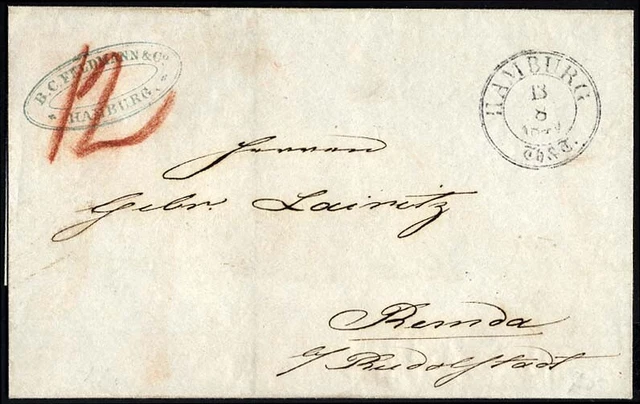 B.C. FELDMANN & Co
HAMBURG.
12
HAMBURG
B
8
Herren
Gebr. Lairitz
Remda
a/ Rudolstadt